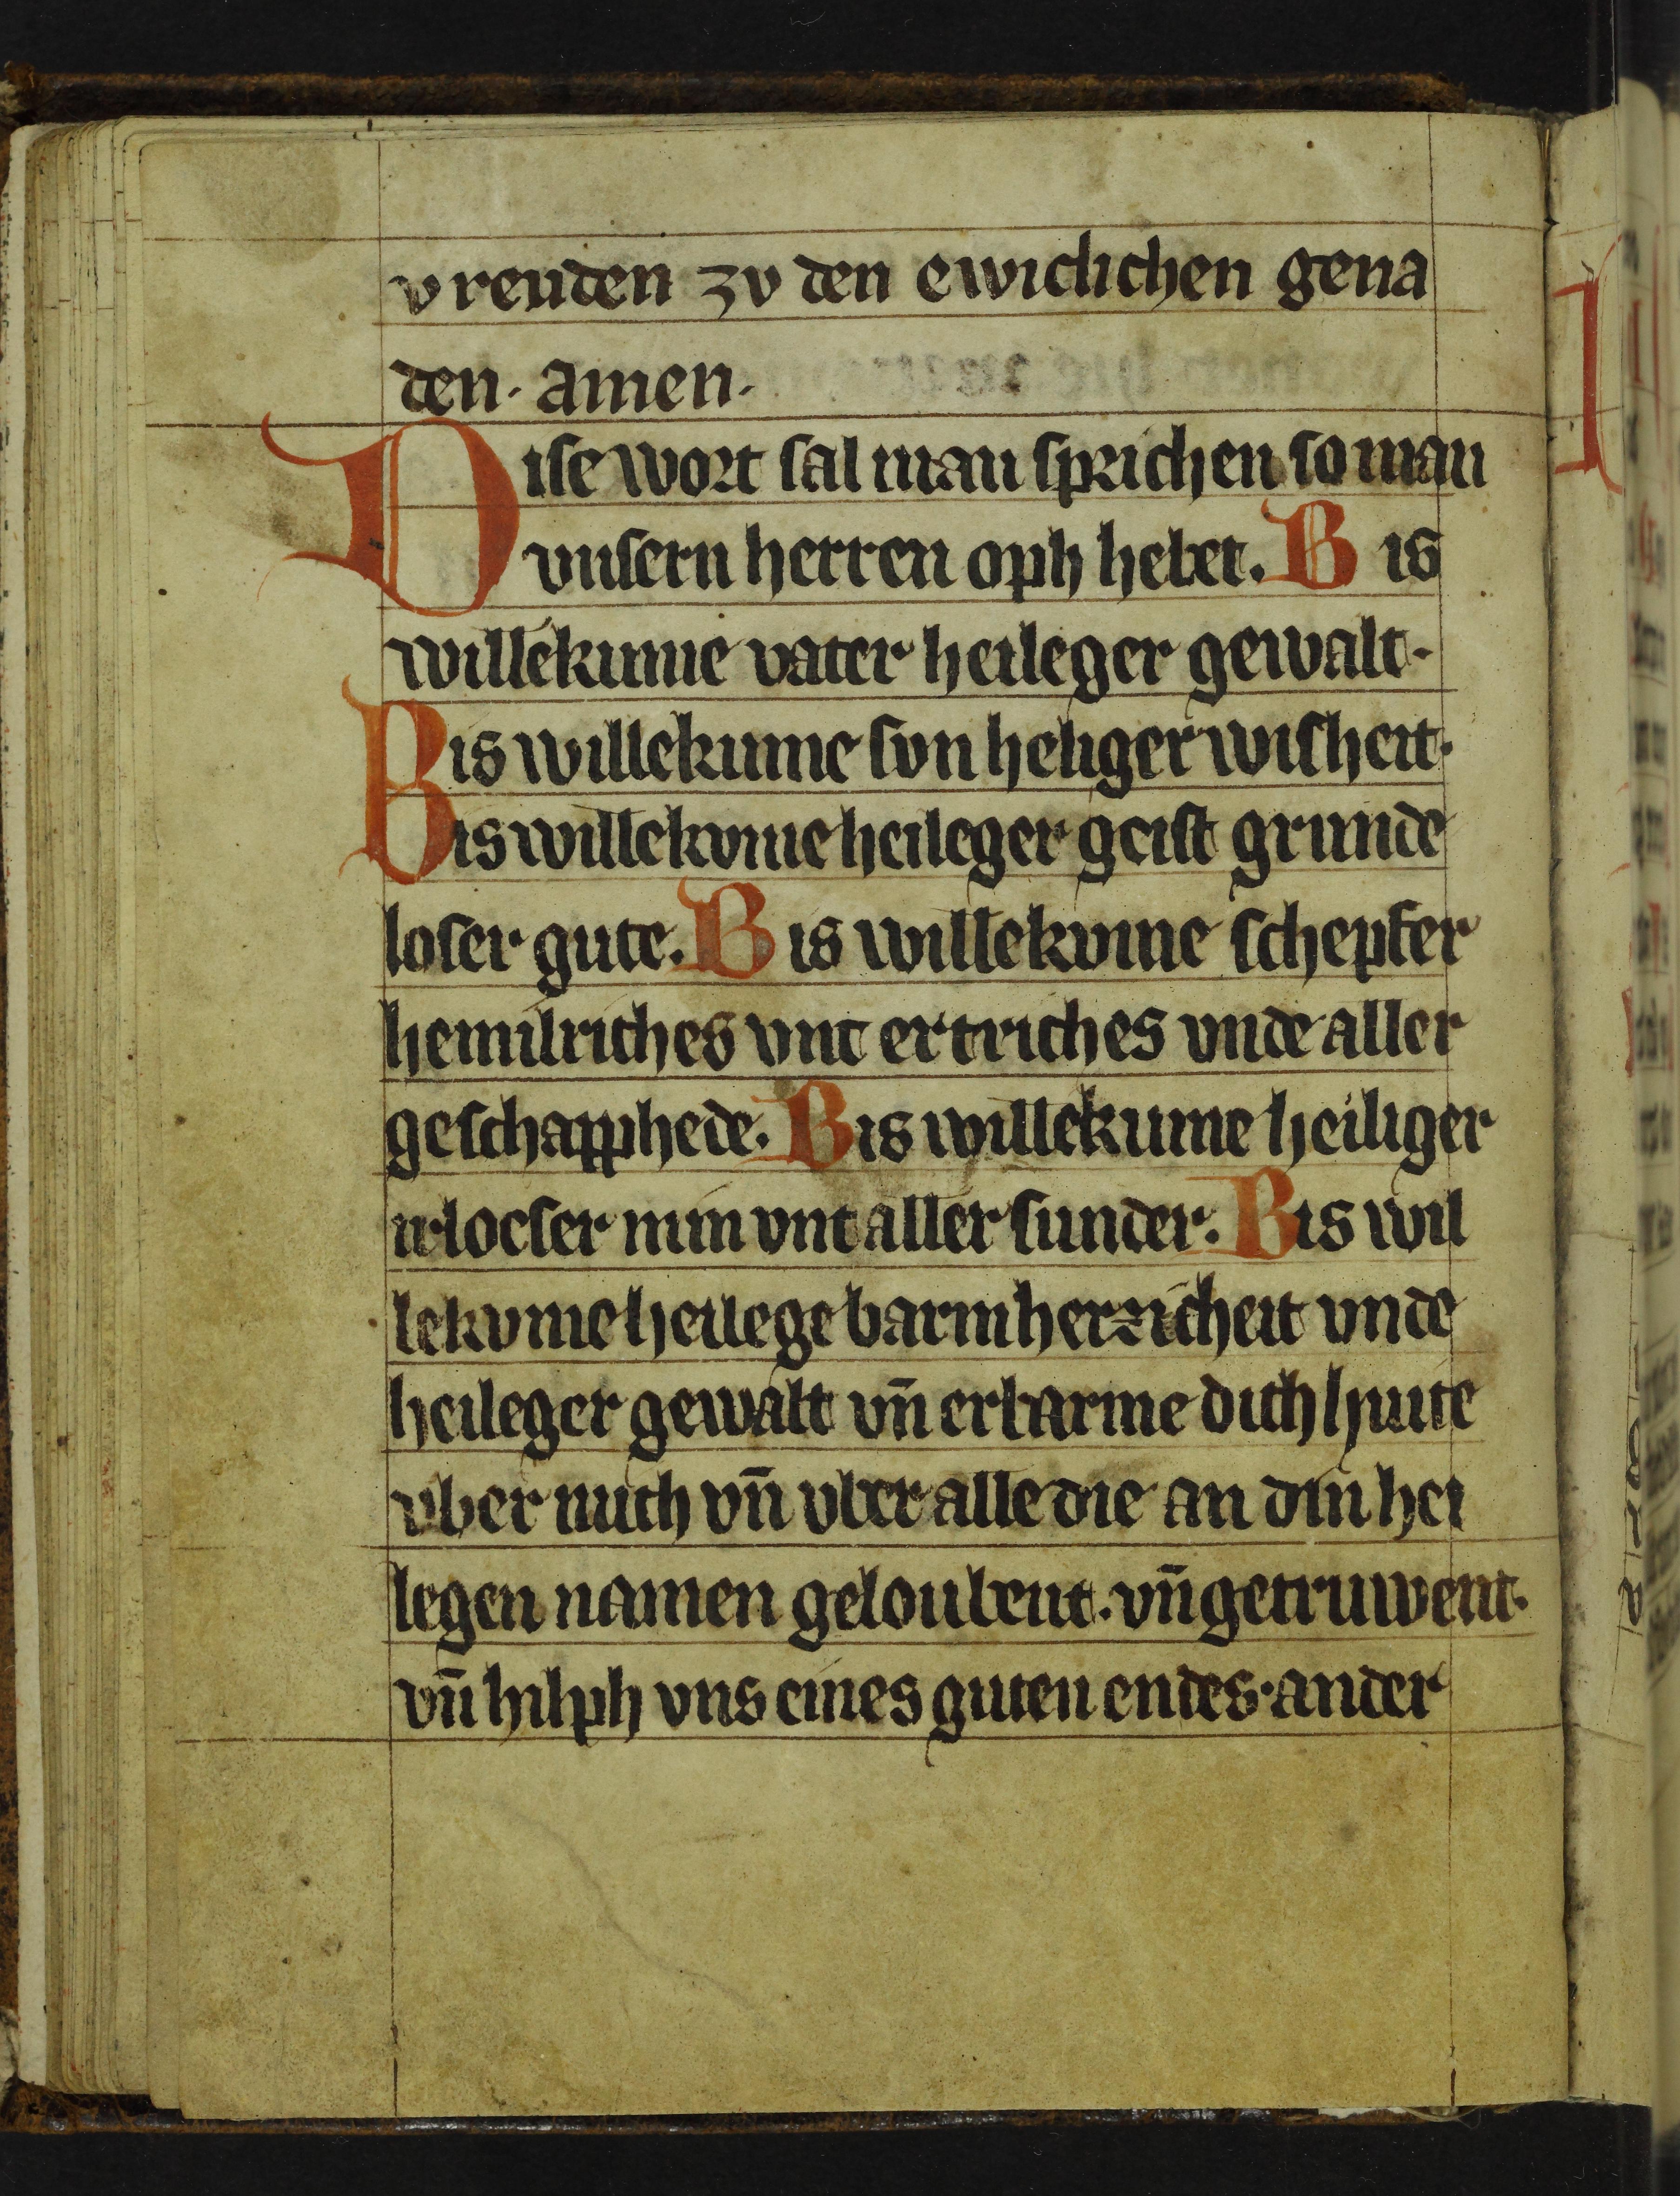 vreuden zv den ewiclichen gena
den· amen·
Dise wort sal man sprichen so man
vnsern herren oph hebet. Bis
willekume vater heileger gewalt·
Bis willekume svn heliger wisheit·
Bis willekvme heileger geist grunde
loser gute. Bis willekvme schepfer
hemilriches vnt ertriches vnde aller
geschapphede. Bis willekume heiliger
irloeser min vnt aller sunder. Bis wil
lekvme heilege barmherzicheit vnde
heileger gewalt vn̄ erbarme dich huite
vber mich vn̄ vber alle die an din hei
legen namen geloubent. vn̄ getruwent·
vn̄ hilph vns eines guten endes· ander